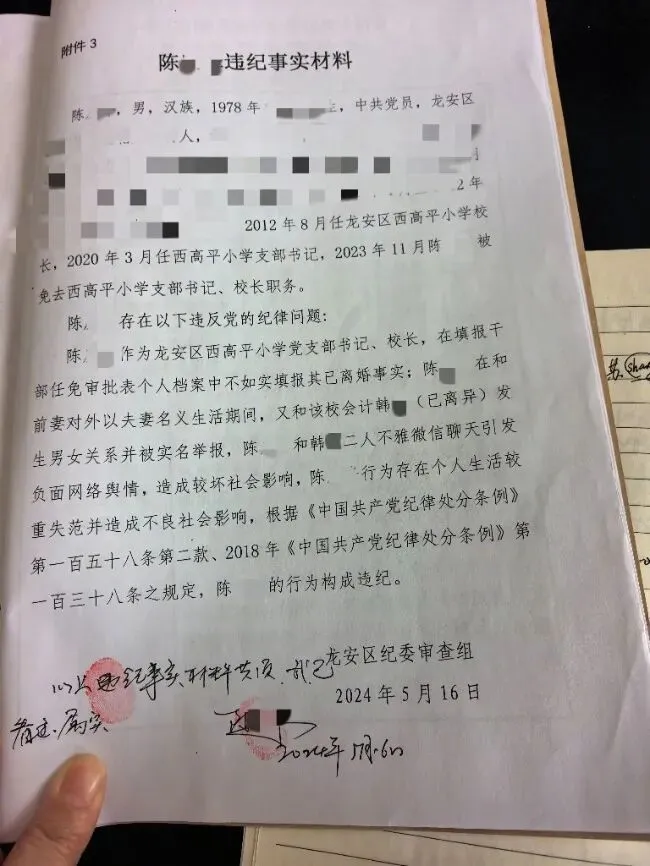 附件 3
陈 违纪事实材料
陈 ，男，汉族，1978 年 生，中共党员，龙安区
人，
月
2 年
2012 年 8 月任龙安区西高平小学校
长，2020 年 3 月任西高平小学支部书记，2023 年 11 月陈 被
免去西高平小学支部书记、校长职务。
陈 存在以下违反党的纪律问题：
陈 作为龙安区西高平小学党支部书记、校长，在填报干
部任免审批表个人档案中不如实填报其已离婚事实；陈 在和
前妻对外以夫妻名义生活期间，又和该校会计韩 （已离异）发
生男女关系并被实名举报，陈 和韩 二人不雅微信聊天引发
负面网络舆情，造成较坏社会影响，陈 行为存在个人生活较
重失范并造成不良社会影响，根据《中国共产党纪律处分条例》
第一百五十八条第二款、2018 年《中国共产党纪律处分条例》第
一百三十八条之规定，陈 的行为构成违纪。
龙安区纪委审查组
2024 年 5 月 16 日
以上违纪事实材料共 页，我已
看过，属实
2024年5月16日